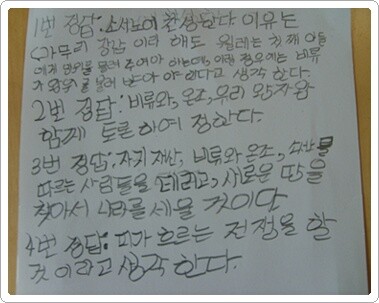 1번 정답: 소서노에 찬성한다 이유는
아무리 강압 이라 해도 원래는 첫째 아들
에게 왕위를 물려 주어야 하는데, 이런 경우에는 비류
가 왕위를 물려 받아야 한다고 생각 한다.
2번 정답: 비류와, 온조, 유리 왕자와
함께 토론 하여 정한다.
3번 정답: 자기 재산, 비류와 온조,
따르는 사람들을 데리고, 새로운 땅을
찾아서 나라를 세울 것이다
4번 정답: 피가 흐르는 전쟁을 할
것 이라고 생각 한다.